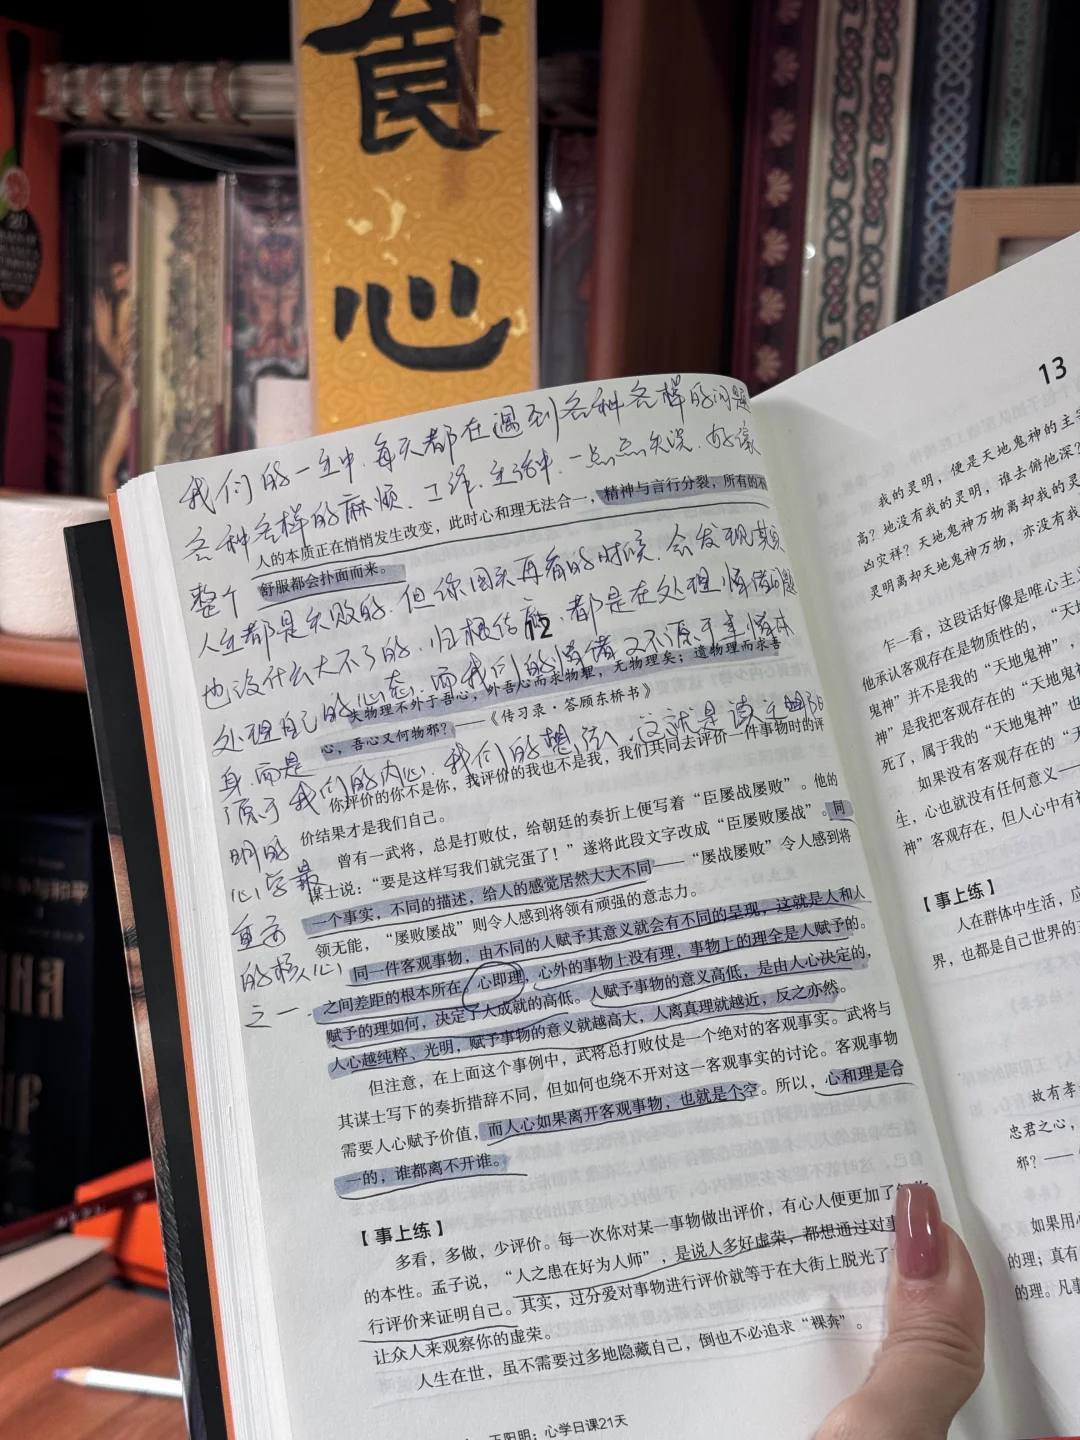 食
心
20
我们的一生中.每天都在遇到各种各样的问题
各种各样的麻烦.工作.生活中.一点点失误.好像
人的本质正在悄悄发生改变，此时心和理无法合一，精神与言行分裂，所有的不
舒服都会扑面而来。
整个
人生都是失败的.但你回头再看的时候.会发现其
12
也没什么大不了的.归根结底.都是在处理情绪问题
处理自己的心态.而我们的情绪又不源于事情本
夫物理不外于吾心，外吾心而求物理，无物理矣；遗物理而求吾
心，吾心又何物邪？——《传习录·答顾东桥书》
身.而是
源于我们的内心.我们的想法.这就是读王阳
你评价的你不是你，我评价的我也不是我，我们共同去评价一件事物时的评
价结果才是我们自己。
明的
心学最
重要
的核心
之一.
曾有一武将，总是打败仗，给朝廷的奏折上便写着“臣屡战屡败”。他的
谋士说：“要是这样写我们就完蛋了！”遂将此段文字改成“臣屡败屡战”。同
一个事实，不同的描述，给人的感觉居然大大不同——“屡战屡败”令人感到将
领无能，“屡败屡战”则令人感到将领有顽强的意志力。
同一件客观事物，由不同的人赋予其意义就会有不同的呈现，这就是人和人
之间差距的根本所在。心即理，心外的事物上没有理，事物上的理全是人赋予的。
赋予的理如何，决定了人成就的高低。人赋予事物的意义高低，是由人心决定的，
人心越纯粹、光明，赋予事物的意义就越高大，人离真理就越近，反之亦然。
但注意，在上面这个事例中，武将总打败仗是一个绝对的客观事实。武将与
其谋士写下的奏折措辞不同，但如何也绕不开对这一客观事实的讨论。客观事物
需要人心赋予价值，而人心如果离开客观事物，也就是个空。所以，心和理是合
一的，谁都离不开谁。
【事上练】
多看，多做，少评价。每一次你对某一事物做出评价，有心人便更加了
的本性。孟子说，“人之患在好为人师”，是说人多好虚荣，都想通过对事
行评价来证明自己。其实，过分爱对事物进行评价就等于在大街上脱光了
让众人来观察你的虚荣。
人生在世，虽不需要过多地隐藏自己，倒也不必追求“裸奔”。
王阳明：心学日课21天
13
我的灵明，便是天地鬼神的主宰
高？地没有我的灵明，谁去俯他深？
凶灾祥？天地鬼神万物离却我的灵
灵明离却天地鬼神万物，亦没有我
乍一看，这段话好像是唯心主
他承认客观存在是物质性的，“天
鬼神”并不是我的“天地鬼神”，
神”是我把客观存在的“天地鬼
死了，属于我的“天地鬼神”也
如果没有客观存在的“天
生，心也就没有任何意义——
神”客观存在，但人心中有
【事上练】
人在群体中生活，应
界，也都是自己世界的
故有孝
忠君之心，
邪？——
如果用心
的理；真有
的理。凡事